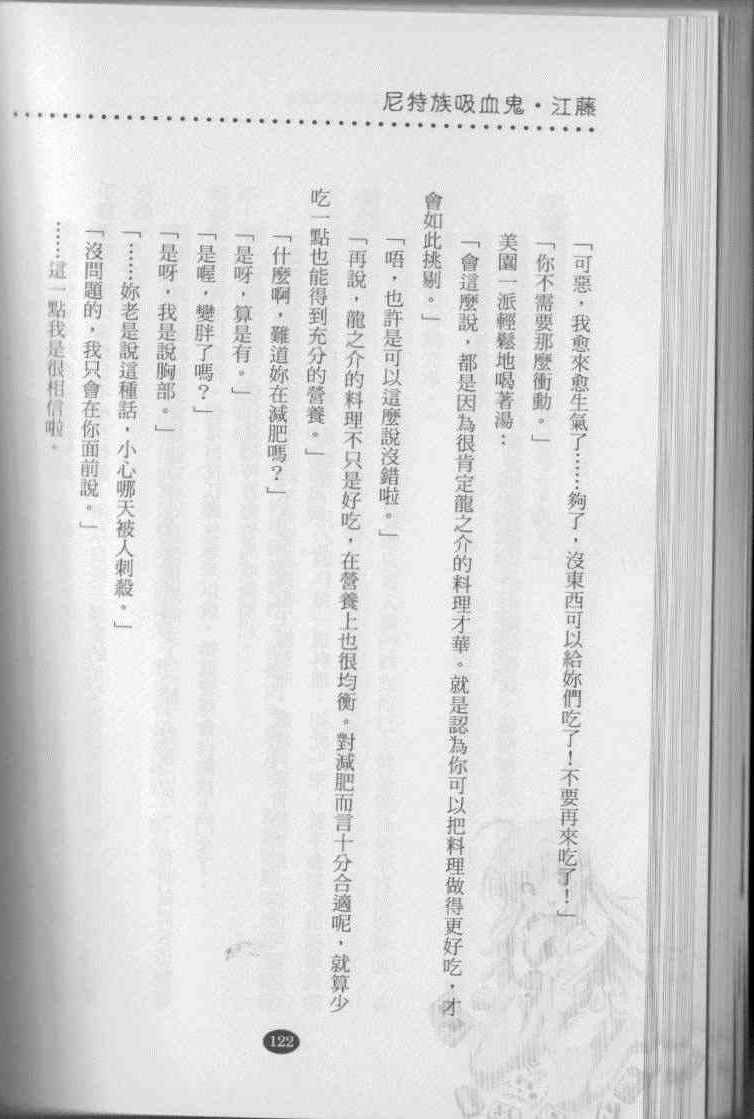 尼特族吸血鬼・江藤
「可惡，我愈來愈生氣了……夠了，沒東西可以給妳們吃了！不要再來吃了！」
「你不需要那麼衝動。」
美園一派輕鬆地喝著湯：
「會這麼說，都是因為很肯定龍之介的料理才華。就是認為你可以把料理做得更好吃，才
會如此挑剔。」
「唔，也許是可以這麼說沒錯啦。」
「再說，龍之介的料理不只是好吃，在營養上也很均衡。對減肥而言十分合適呢，就算少
吃一點也能得到充分的營養。」
「什麼啊，難道妳在減肥嗎？」
「是呀，算是有。」
「是喔，變胖了嗎？」
「是呀，我是說胸部。」
「……妳老是說這種話，小心哪天被人刺殺。」
「沒問題的，我只會在你面前說。」
……這一點我是很相信啦。
122